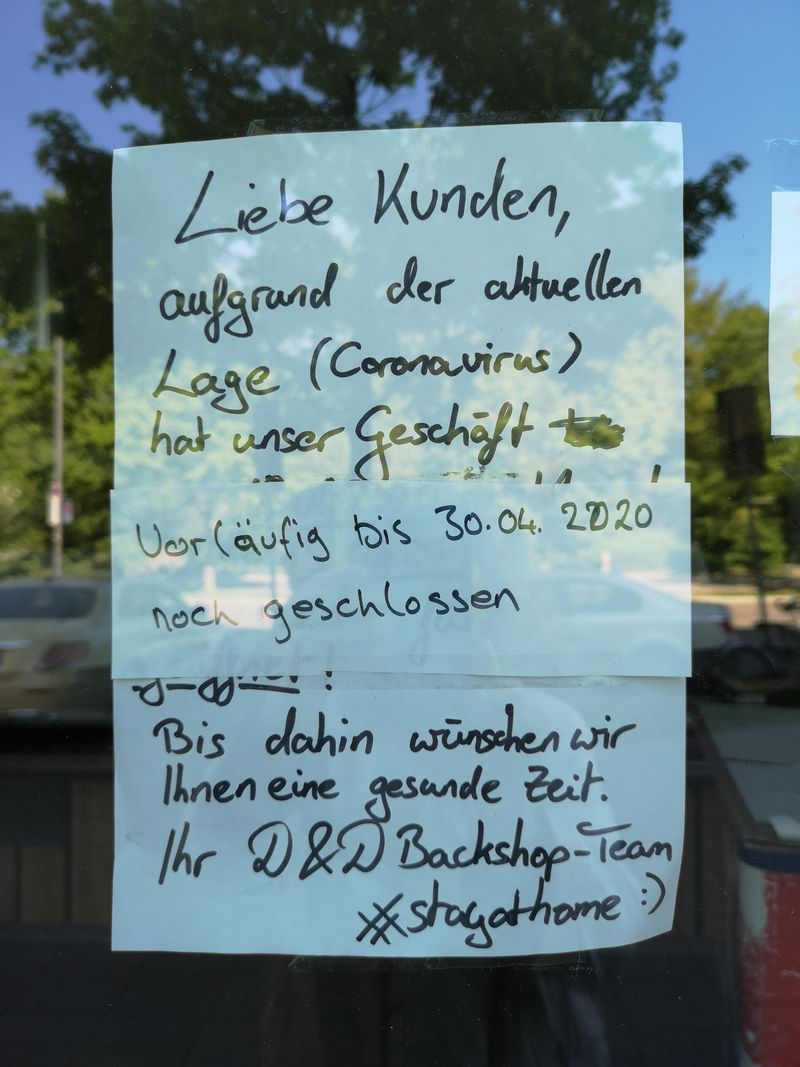 Liebe Kunden,
aufgrund der aktuellen
Lage (Coronavirus)
hat unser Geschäft
Vorläufig bis 30.04.2020
noch geschlossen
Bis dahin wünschen wir
Ihnen eine gesunde Zeit.
Ihr D&D Backshop-Team
#stayathome :)